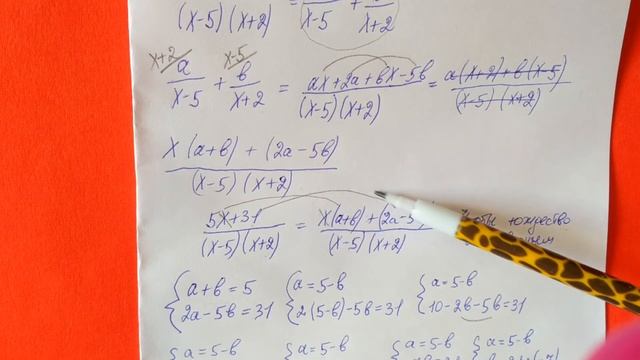 (x-5)(x+2) = x-5 + x+2
x+2 x-5
a/(x-5) + b/(x+2) = (ax+2a+bx-5b)/((x-5)(x+2)) = (a(x+2)+b(x-5))/((x-5)(x+2))
(x(a+b)+(2a-5b))/((x-5)(x+2))
(5x+31)/((x-5)(x+2)) = (x(a+b)+(2a-5))/((x-5)(x+2)) тождество
{a+b=5 {a=5-b {a=5-b
{2a-5b=31 {2(5-b)-5b=31 {10-2b-5b=31
{a=5-b {a=5-b {a=5-b {a=5-b